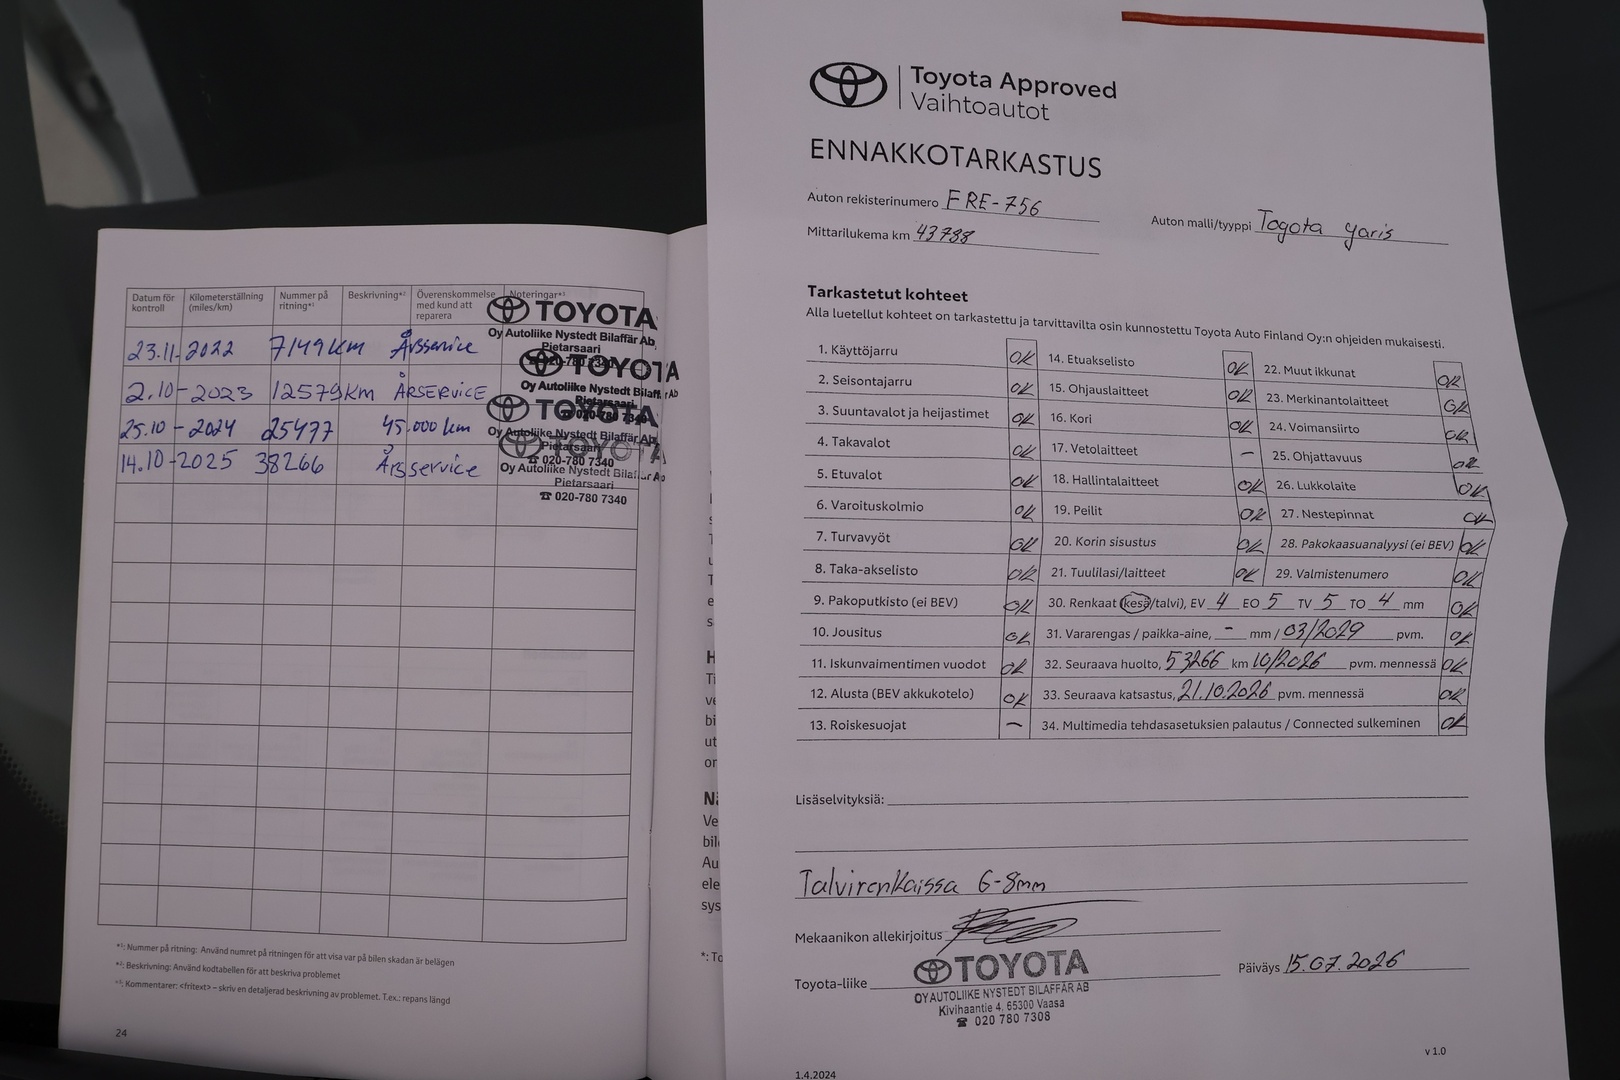 Datum för kontroll
Kilometerställning (miles/km)
Nummer på ritning*¹
Beskrivning*²
Överenskommelse med kund att reparera
Noteringar*³
23.11-2022 7149km Årsservice
2.10-2023 12579km ÅRSERVICE
25.10-2024 25477 45.000 km
14.10-2025 38266 Årsservice
TOYOTA
Oy Autoliike Nystedt Bilaffär Ab
Pietarsaari
TOYOTA
Oy Autoliike Nystedt Bilaffär Ab
Pietarsaari
TOYOTA
Oy Autoliike Nystedt Bilaffär Ab
Pietarsaari
☎ 020-780 7340
TOYOTA
Oy Autoliike Nystedt Bilaffär Ab
Pietarsaari
☎ 020-780 7340
*¹: Nummer på ritning: Använd numret på ritningen för att visa var på bilen skadan är belägen
*²: Beskrivning: Använd kodtabellen för att beskriva problemet
*³: Kommentarer: <fritext> – skriv en detaljerad beskrivning av problemet. T.ex.: repans längd
24
Toyota Approved
Vaihtoautot
ENNAKKOTARKASTUS
Auton rekisterinumero FRE-756
Auton malli/tyyppi Toyota yaris
Mittarilukema km 43788
Tarkastetut kohteet
Alla luetellut kohteet on tarkastettu ja tarvittavilta osin kunnostettu Toyota Auto Finland Oy:n ohjeiden mukaisesti.
1. Käyttöjarru OK
2. Seisontajarru OK
3. Suuntavalot ja heijastimet OK
4. Takavalot OK
5. Etuvalot OK
6. Varoituskolmio OK
7. Turvavyöt OK
8. Taka-akselisto OK
9. Pakoputkisto (ei BEV) OK
10. Jousitus OK
11. Iskunvaimentimen vuodot OK
12. Alusta (BEV akkukotelo) OK
13. Roiskesuojat –
14. Etuakselisto OK
15. Ohjauslaitteet OK
16. Kori OK
17. Vetolaitteet –
18. Hallintalaitteet OK
19. Peilit OK
20. Korin sisustus OK
21. Tuulilasi/laitteet OK
22. Muut ikkunat OK
23. Merkinantolaitteet OK
24. Voimansiirto OK
25. Ohjattavuus OK
26. Lukkolaite OK
27. Nestepinnat OK
28. Pakokaasuanalyysi (ei BEV) OK
29. Valmistenumero OK
30. Renkaat (kesä/talvi), EV 4 EO 5 TV 5 TO 4 mm OK
31. Vararengas / paikka-aine, – mm / 03/2029 pvm. OK
32. Seuraava huolto, 53266 km 10/2026 pvm. mennessä OK
33. Seuraava katsastus, 21.10.2026 pvm. mennessä OK
34. Multimedia tehdasasetuksien palautus / Connected sulkeminen OK
Lisäselvityksiä:
Talvirenkaissa 6-8mm
Mekaanikon allekirjoitus
Toyota-liike
TOYOTA
OY AUTOLIIKE NYSTEDT BILAFFÄR AB
Kivihaantie 4, 65300 Vaasa
☎ 020 780 7308
Päiväys 15.07.2026
v 1.0
1.4.2024